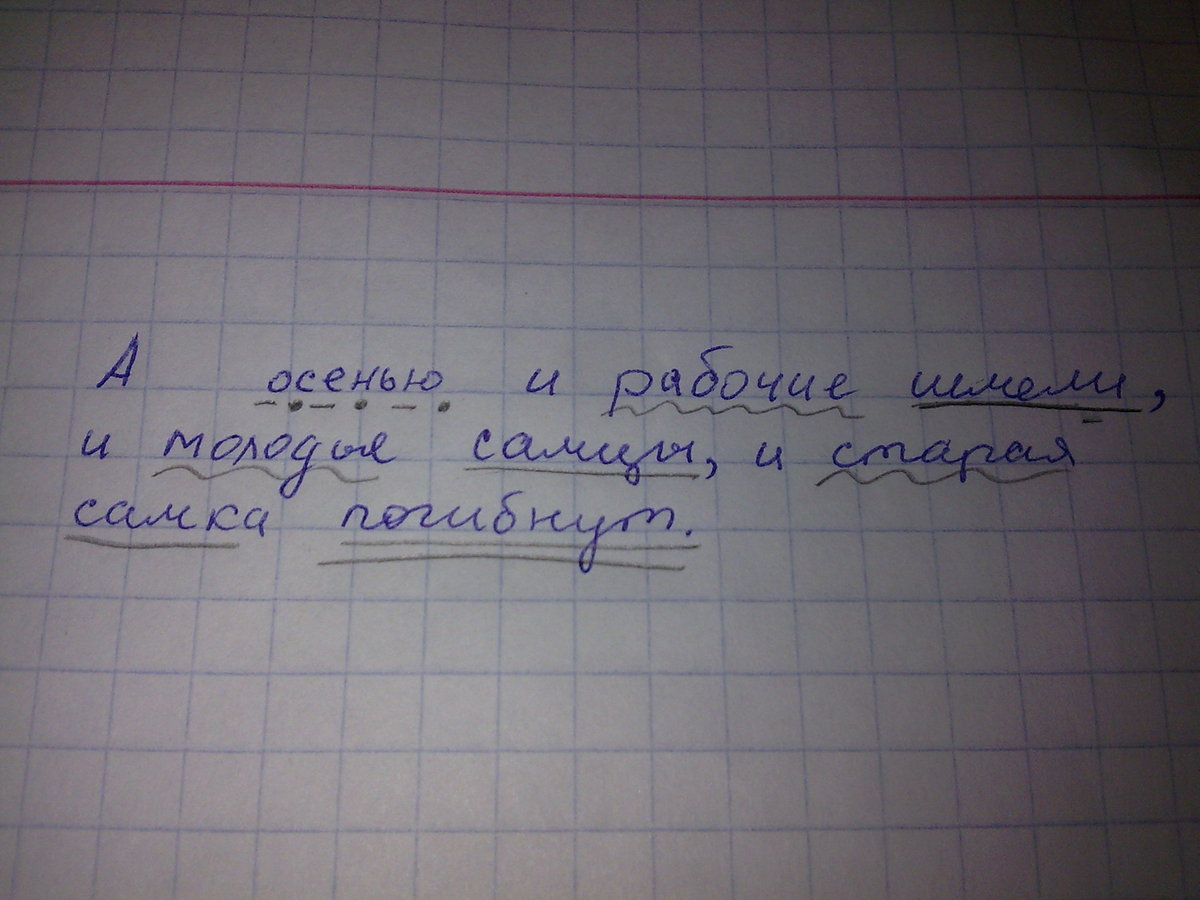 А осенью и рабочие шмели,
и молодые самцы, и старая
самка погибнут.